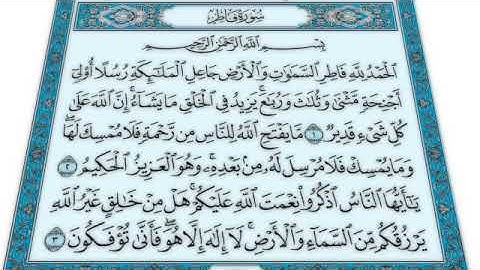 سُورَةُ فَاطِرٍ
بِسْمِ اللَّهِ الرَّحْمَٰنِ الرَّحِيمِ
الْحَمْدُ لِلَّهِ فَاطِرِ السَّمَاوَاتِ وَالْأَرْضِ جَاعِلِ الْمَلَائِكَةِ رُسُلًا أُولِي
أَجْنِحَةٍ مَّثْنَىٰ وَثُلَاثَ وَرُبَاعَ ۚ يَزِيدُ فِي الْخَلْقِ مَا يَشَاءُ ۚ إِنَّ اللَّهَ عَلَىٰ
كُلِّ شَيْءٍ قَدِيرٌ ١ مَّا يَفْتَحِ اللَّهُ لِلنَّاسِ مِن رَّحْمَةٍ فَلَا مُمْسِكَ لَهَا ۖ
وَمَا يُمْسِكْ فَلَا مُرْسِلَ لَهُ مِن بَعْدِهِ ۚ وَهُوَ الْعَزِيزُ الْحَكِيمُ ٢
يَا أَيُّهَا النَّاسُ اذْكُرُوا نِعْمَتَ اللَّهِ عَلَيْكُمْ ۚ هَلْ مِنْ خَالِقٍ غَيْرُ اللَّهِ
يَرْزُقُكُم مِّنَ السَّمَاءِ وَالْأَرْضِ ۚ لَا إِلَٰهَ إِلَّا هُوَ ۖ فَأَنَّىٰ تُؤْفَكُونَ ٣